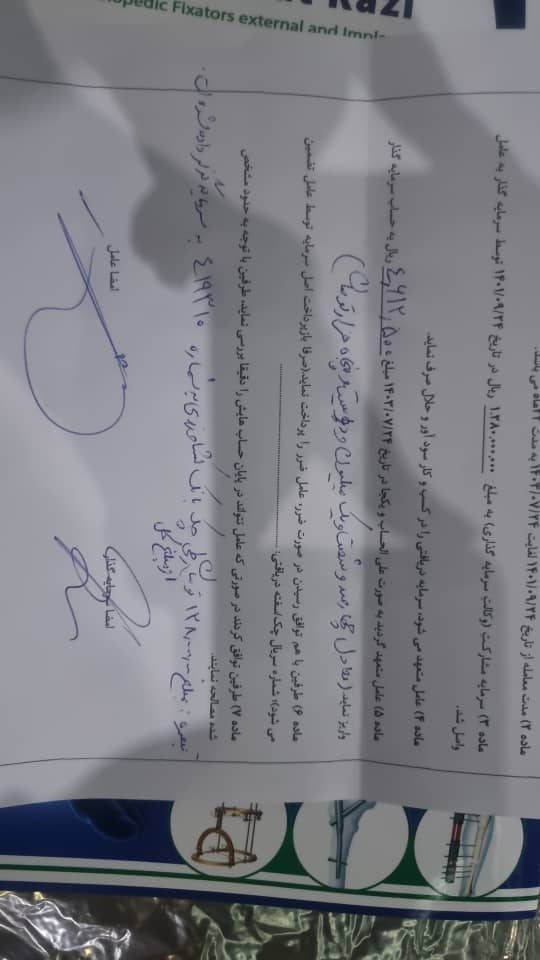 Razi
Orthopedic Fixators external and Impla
ماده ۲) مدت معامله از تاریخ ۱۴۰۱/۰۹/۲۴ لغایت ۱۴۰۳/۰۷/۲۴ به مدت ۲۲ماه می باشد.
ماده ۳) سرمایه مشارکت (وکالت سرمایه گذاری) به مبلغ ۱.۲۸۰.۰۰۰.۰۰۰ ریال در تاریخ ۱۴۰۱/۰۹/۲۴ توسط سرمایه گذار به عامل
واصل شد.
ماده ۴) عامل متعهد می شود، سرمایه دریافتی را در کسب و کار سود آور و حلال صرف نماید.
ماده ۵) عامل متعهد گردید به صورت علی الحساب و یکجا در تاریخ ۱۴۰۳/۰۷/۲۴ مبلغ ریال به حساب سرمایه گذار
واریز نماید (معادل چهارصد و شصت و یک میلیون و دویست و پنجاه هزار تومان)
ماده ۶) طرفین با هم توافق رسیدن در صورت ضرر، عامل ضرر را پرداخت نماید(صرفا بازپرداخت اصل سرمایه توسط عامل تضمین
می شود)؛ شماره سریال چک/سفته دریافتی:
ماده ۷) طرفین توافق کردند در صورتی که عامل نتواند در پایان حساب هایش را دقیقا بررسی نماید، طرفین با توجه به حدود مشخص
شده مصالحه نمایند.
تبصره: مبلغ ۱۲۸۰۰۰۰۰۰ تومان طی چک بانک کشاورزی به شماره ۴۱۹۳۱۰ به سرمایه گذار داده شده است.
از مبلغ کل
امضا سرمایه گذار
امضا عامل